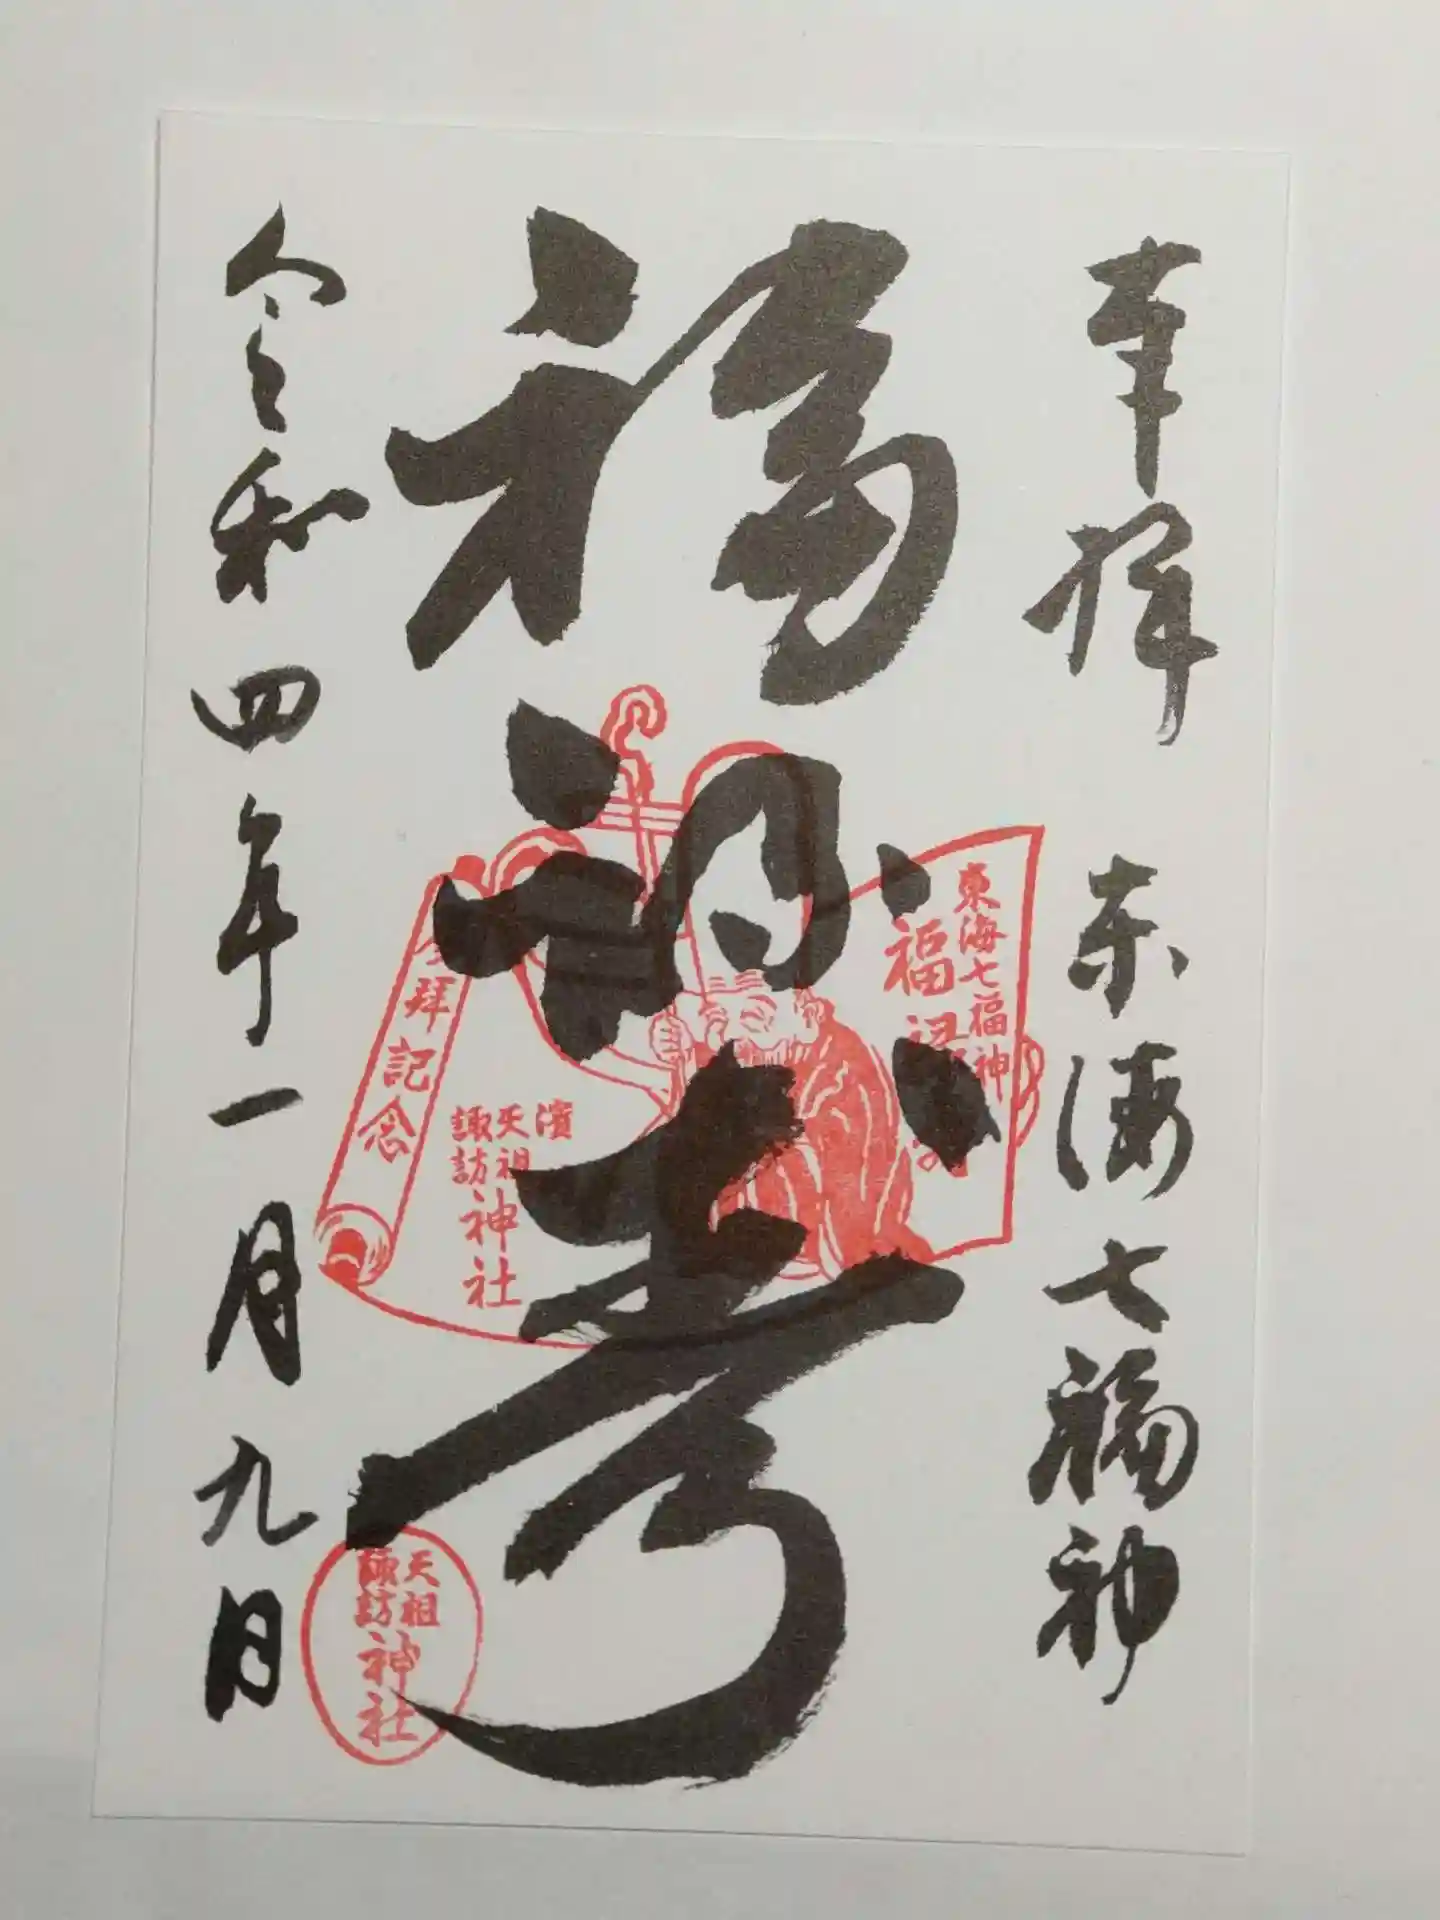 奉拝 東海七福神
福禄寿
令和四年一月九日
東海七福神
福禄寿
参拜記念
濱
天祖
諏訪
神社
天祖
諏訪
神社